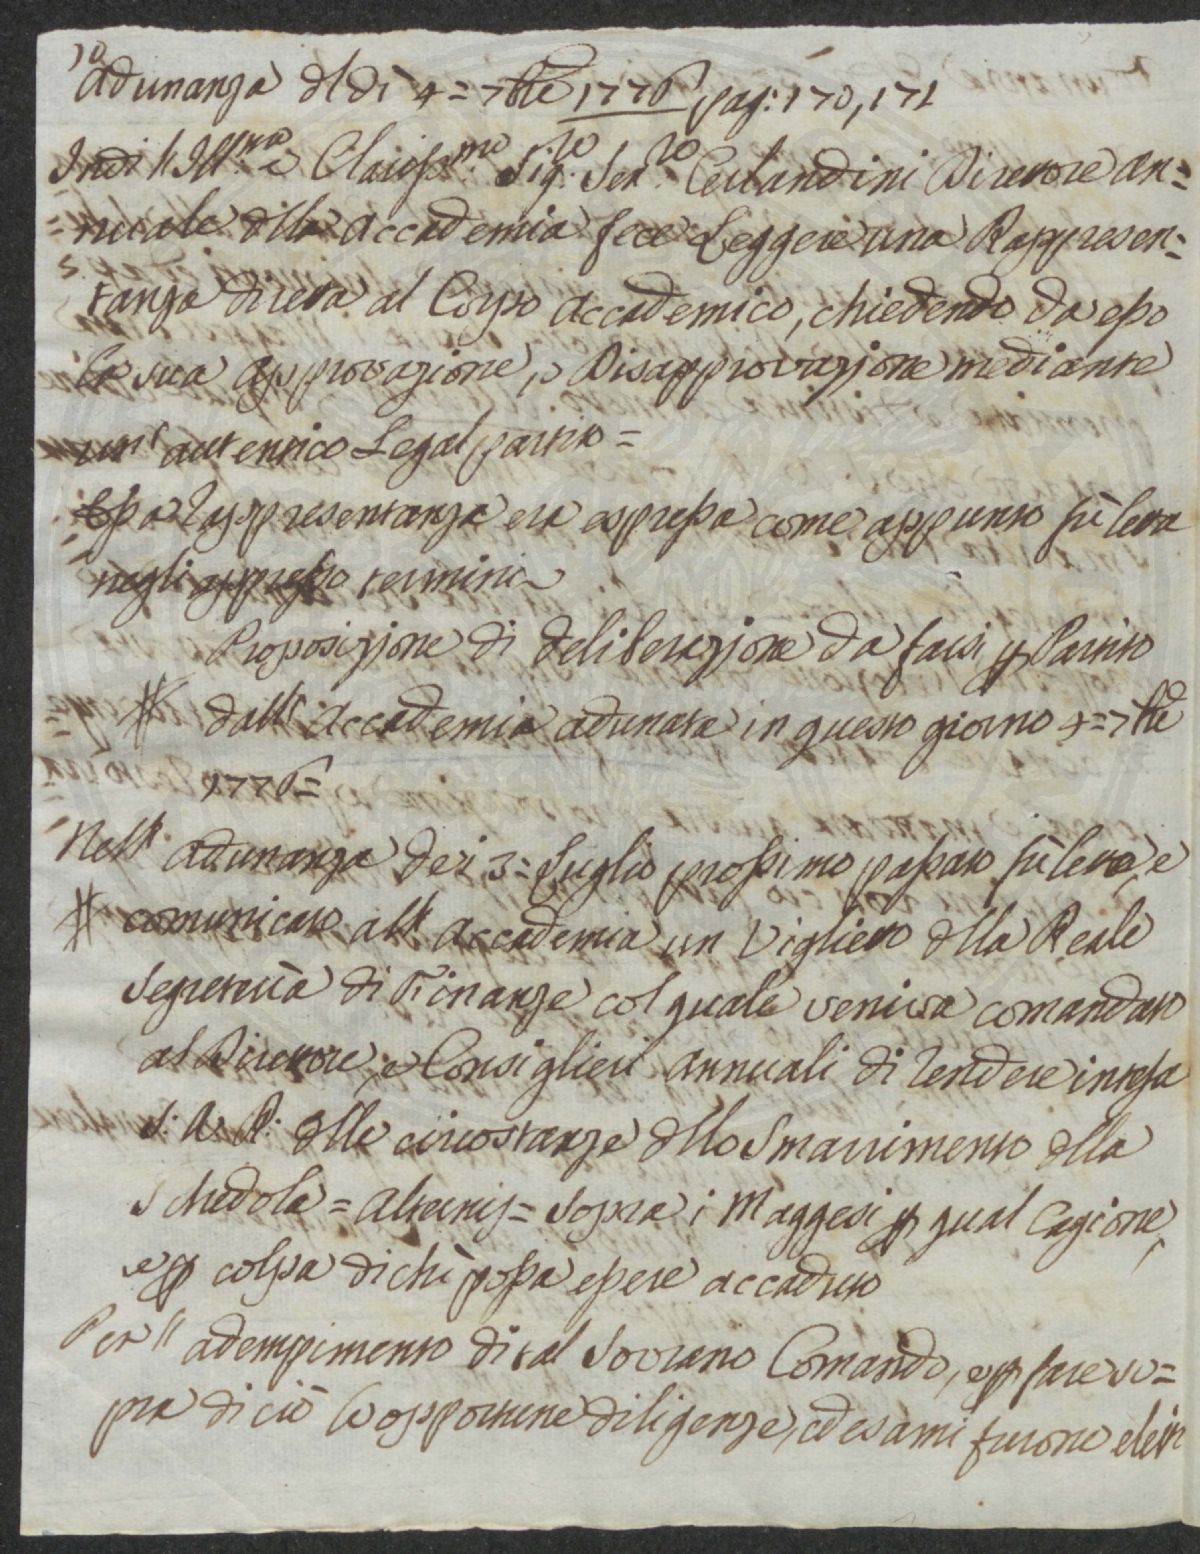 10
Adunanza dl dì 4 = 7bre 1776 pag: 170, 171
Indi l'Ill:mo e Clariss:mo Sig:re Sen:re Cerlandini Direttore an=
=nuale dlla Accademia fece Leggere una Rappresen=
tanza diretta al Corpo Accademico, chiedendo da esso
la sua approvazione, o Disapprovazione mediante
un' autentico Legal partito =
Essa Rappresentanza era espressa come appunto fù letta
negli appresso termini
Proposizione di deliberazione da farsi p Partito
# dall' Accademia adunata in questo giorno 4 = 7bre
1776 =
Nell' Adunanza dei 3 = Luglio prossimo passato fù letto, e
# comunicato all' Accademia un Viglietto dlla Reale
Segreteria di Finanze col quale veniva comandato
al Direttore, e Consiglieri Annuali di rendere intesa
S. A. R. dlle circostanze dllo Smarrimento dlla
Schedola = Alternis = sopra i Maggesi p qual Cagione,
e p colpa di chi possa essere accaduto
Per l' adempimento di tal Sovrano Comando, e p fare so=
pra di ciò le opportune diligenze, ed esami furono eletti